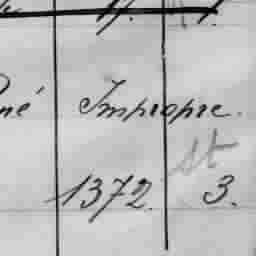 né Impropre.
st
1372. 3.